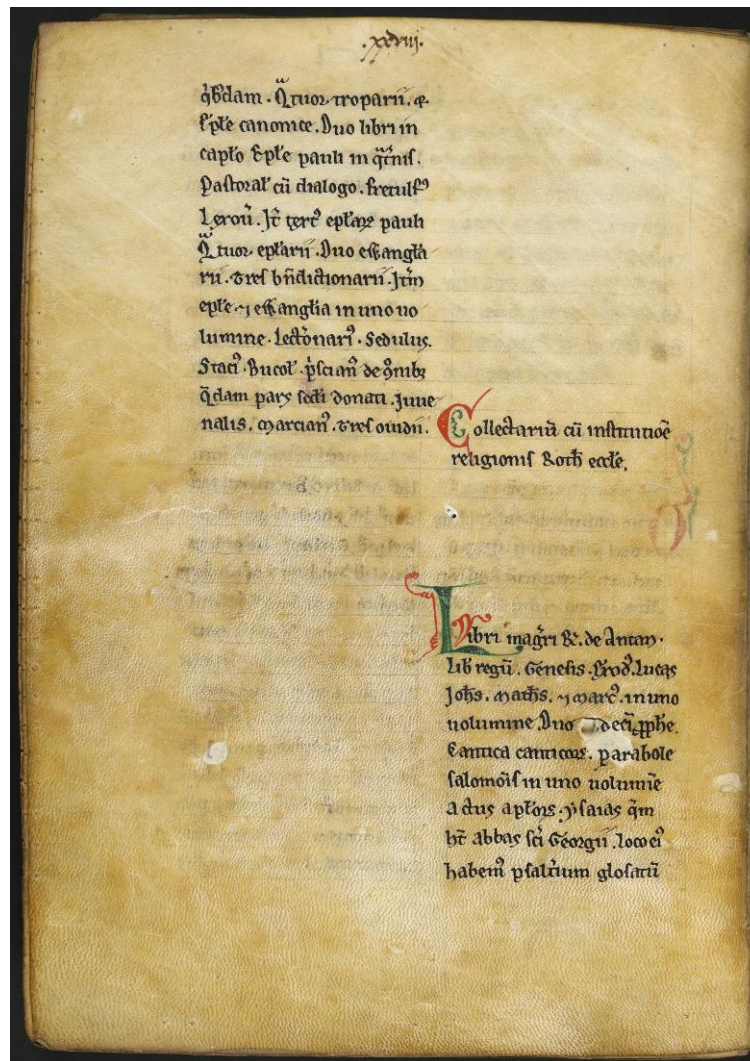 .xxviij.
q̇bdam . Q̇tuor troparii. ⁊
ep̄le canonice. Duo libri in
capl̄o Ep̄le pauli in q̇t̄nis.
Pastoral̄ cū dialogo.
Jt̄ terc̄ꝰ epl̄aꝝ pauli
Q̇tuor eplarii. Duo euangl̄ia
rii. Tres bn̄dictionarii. Jt̄m
eple ⁊ euanglia in uno uo
lumine. Lectōnariꝰ. Sedulius.
Staciꝰ. Bucol̄. p̄scianꝰ de
q̄dam pars sedi donati. Juue
nalis. Marcianꝰ. Tres ouidii.
Collectariū cū institutiōe
religionis Roth̄ eccl̄e.
Libri magr̄i R̄. de Antan.
Lib̄ regū. Genesis. Exod̄. Lucas
Joh̄s. Math̄s. ⁊ Marcꝰ. in uno
uolumine. Duo decī ꝓphe.
Cantica canticoꝝ. parabole
salomōis in uno uolumīe
Actus apl̄oꝝ. ysaias q̄m
ht̄ abbas sc̄i Georgii. loco eiꝰ
habemꝰ psalt̄ium glosatū